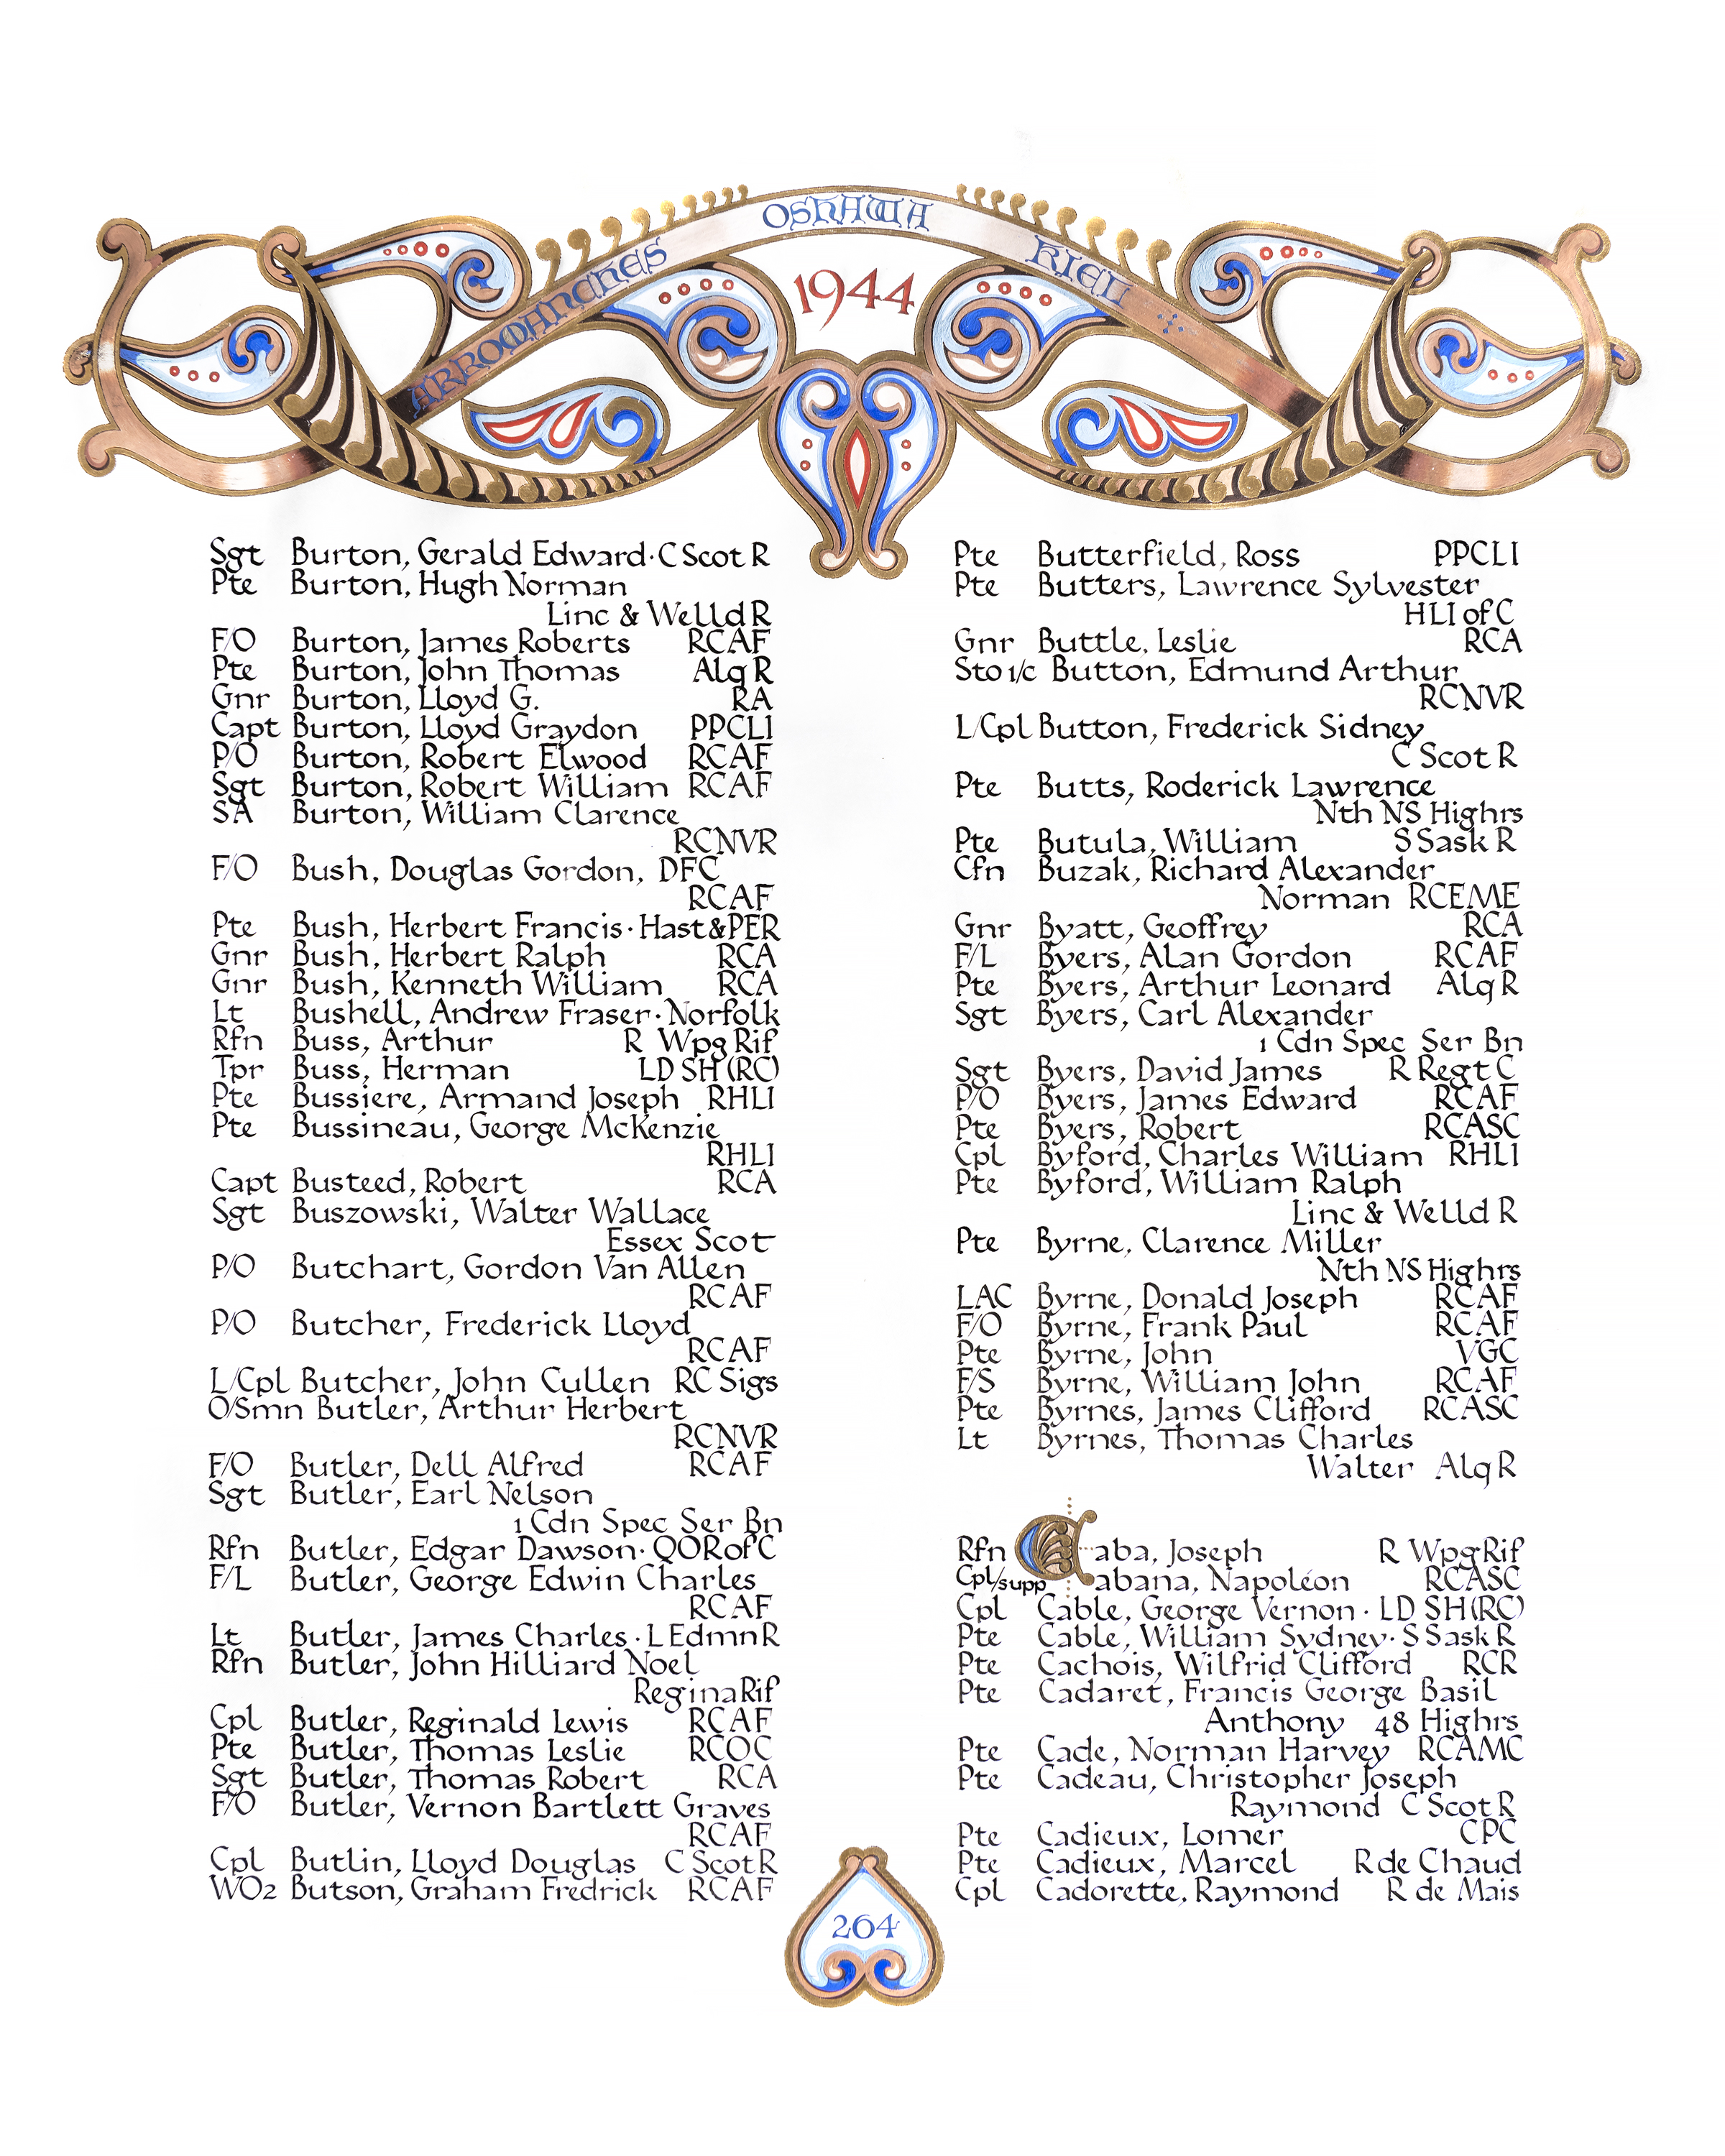 ARROMANCHES
OSHAWA
KIEL
1944
Sgt Burton, Gerald Edward · C Scot R
Pte Burton, Hugh Norman
Linc & Welld R
F/O Burton, James Roberts RCAF
Pte Burton, John Thomas Alq R
Gnr Burton, Lloyd G. RA
Capt Burton, Lloyd Graydon PPCLI
P/O Burton, Robert Elwood RCAF
Sgt Burton, Robert William RCAF
SA Burton, William Clarence
RCNVR
F/O Bush, Douglas Gordon, DFC
RCAF
Pte Bush, Herbert Francis · Hast & PER
Gnr Bush, Herbert Ralph RCA
Gnr Bush, Kenneth William RCA
Lt Bushell, Andrew Fraser · Norfolk
Rfn Buss, Arthur R Wpg Rif
Tpr Buss, Herman LD SH (RC)
Pte Bussiere, Armand Joseph RHLI
Pte Bussineau, George McKenzie
RHLI
Capt Busteed, Robert RCA
Sgt Buszowski, Walter Wallace
Essex Scot
P/O Butchart, Gordon Van Allen
RCAF
P/O Butcher, Frederick Lloyd
RCAF
L/Cpl Butcher, John Cullen RC Sigs
O/Smn Butler, Arthur Herbert
RCNVR
F/O Butler, Dell Alfred RCAF
Sgt Butler, Earl Nelson
1 Cdn Spec Ser Bn
Rfn Butler, Edgar Dawson · QOR of C
F/L Butler, George Edwin Charles
RCAF
Lt Butler, James Charles · L Edmn R
Rfn Butler, John Hilliard Noel
Regina Rif
Cpl Butler, Reginald Lewis RCAF
Pte Butler, Thomas Leslie RCOC
Sgt Butler, Thomas Robert RCA
F/O Butler, Vernon Bartlett Graves
RCAF
Cpl Butlin, Lloyd Douglas C Scot R
WO2 Butson, Graham Fredrick RCAF
Pte Butterfield, Ross PPCLI
Pte Butters, Lawrence Sylvester
HLI of C
Gnr Buttle, Leslie RCA
Sto 1/c Button, Edmund Arthur
RCNVR
L/Cpl Button, Frederick Sidney
C Scot R
Pte Butts, Roderick Lawrence
Nth NS Highrs
Pte Butula, William S Sask R
Cfn Buzak, Richard Alexander
Norman RCEME
Gnr Byatt, Geoffrey RCA
F/L Byers, Alan Gordon RCAF
Pte Byers, Arthur Leonard Alq R
Sgt Byers, Carl Alexander
1 Cdn Spec Ser Bn
Sgt Byers, David James R Regt C
P/O Byers, James Edward RCAF
Pte Byers, Robert RCASC
Cpl Byford, Charles William RHLI
Pte Byford, William Ralph
Linc & Welld R
Pte Byrne, Clarence Miller
Nth NS Highrs
LAC Byrne, Donald Joseph RCAF
F/O Byrne, Frank Paul RCAF
Pte Byrne, John VGC
F/S Byrne, William John RCAF
Pte Byrnes, James Clifford RCASC
Lt Byrnes, Thomas Charles
Walter Alq R
Rfn Caba, Joseph R Wpg Rif
Cpl/supp Cabana, Napoléon RCASC
Cpl Cable, George Vernon · LD SH (RC)
Pte Cable, William Sydney · S Sask R
Pte Cachois, Wilfrid Clifford RCR
Pte Cadaret, Francis George Basil
Anthony 48 Highrs
Pte Cade, Norman Harvey RCAMC
Pte Cadeau, Christopher Joseph
Raymond C Scot R
Pte Cadieux, Lomer CPC
Pte Cadieux, Marcel R de Chaud
Cpl Cadorette, Raymond R de Mais
264